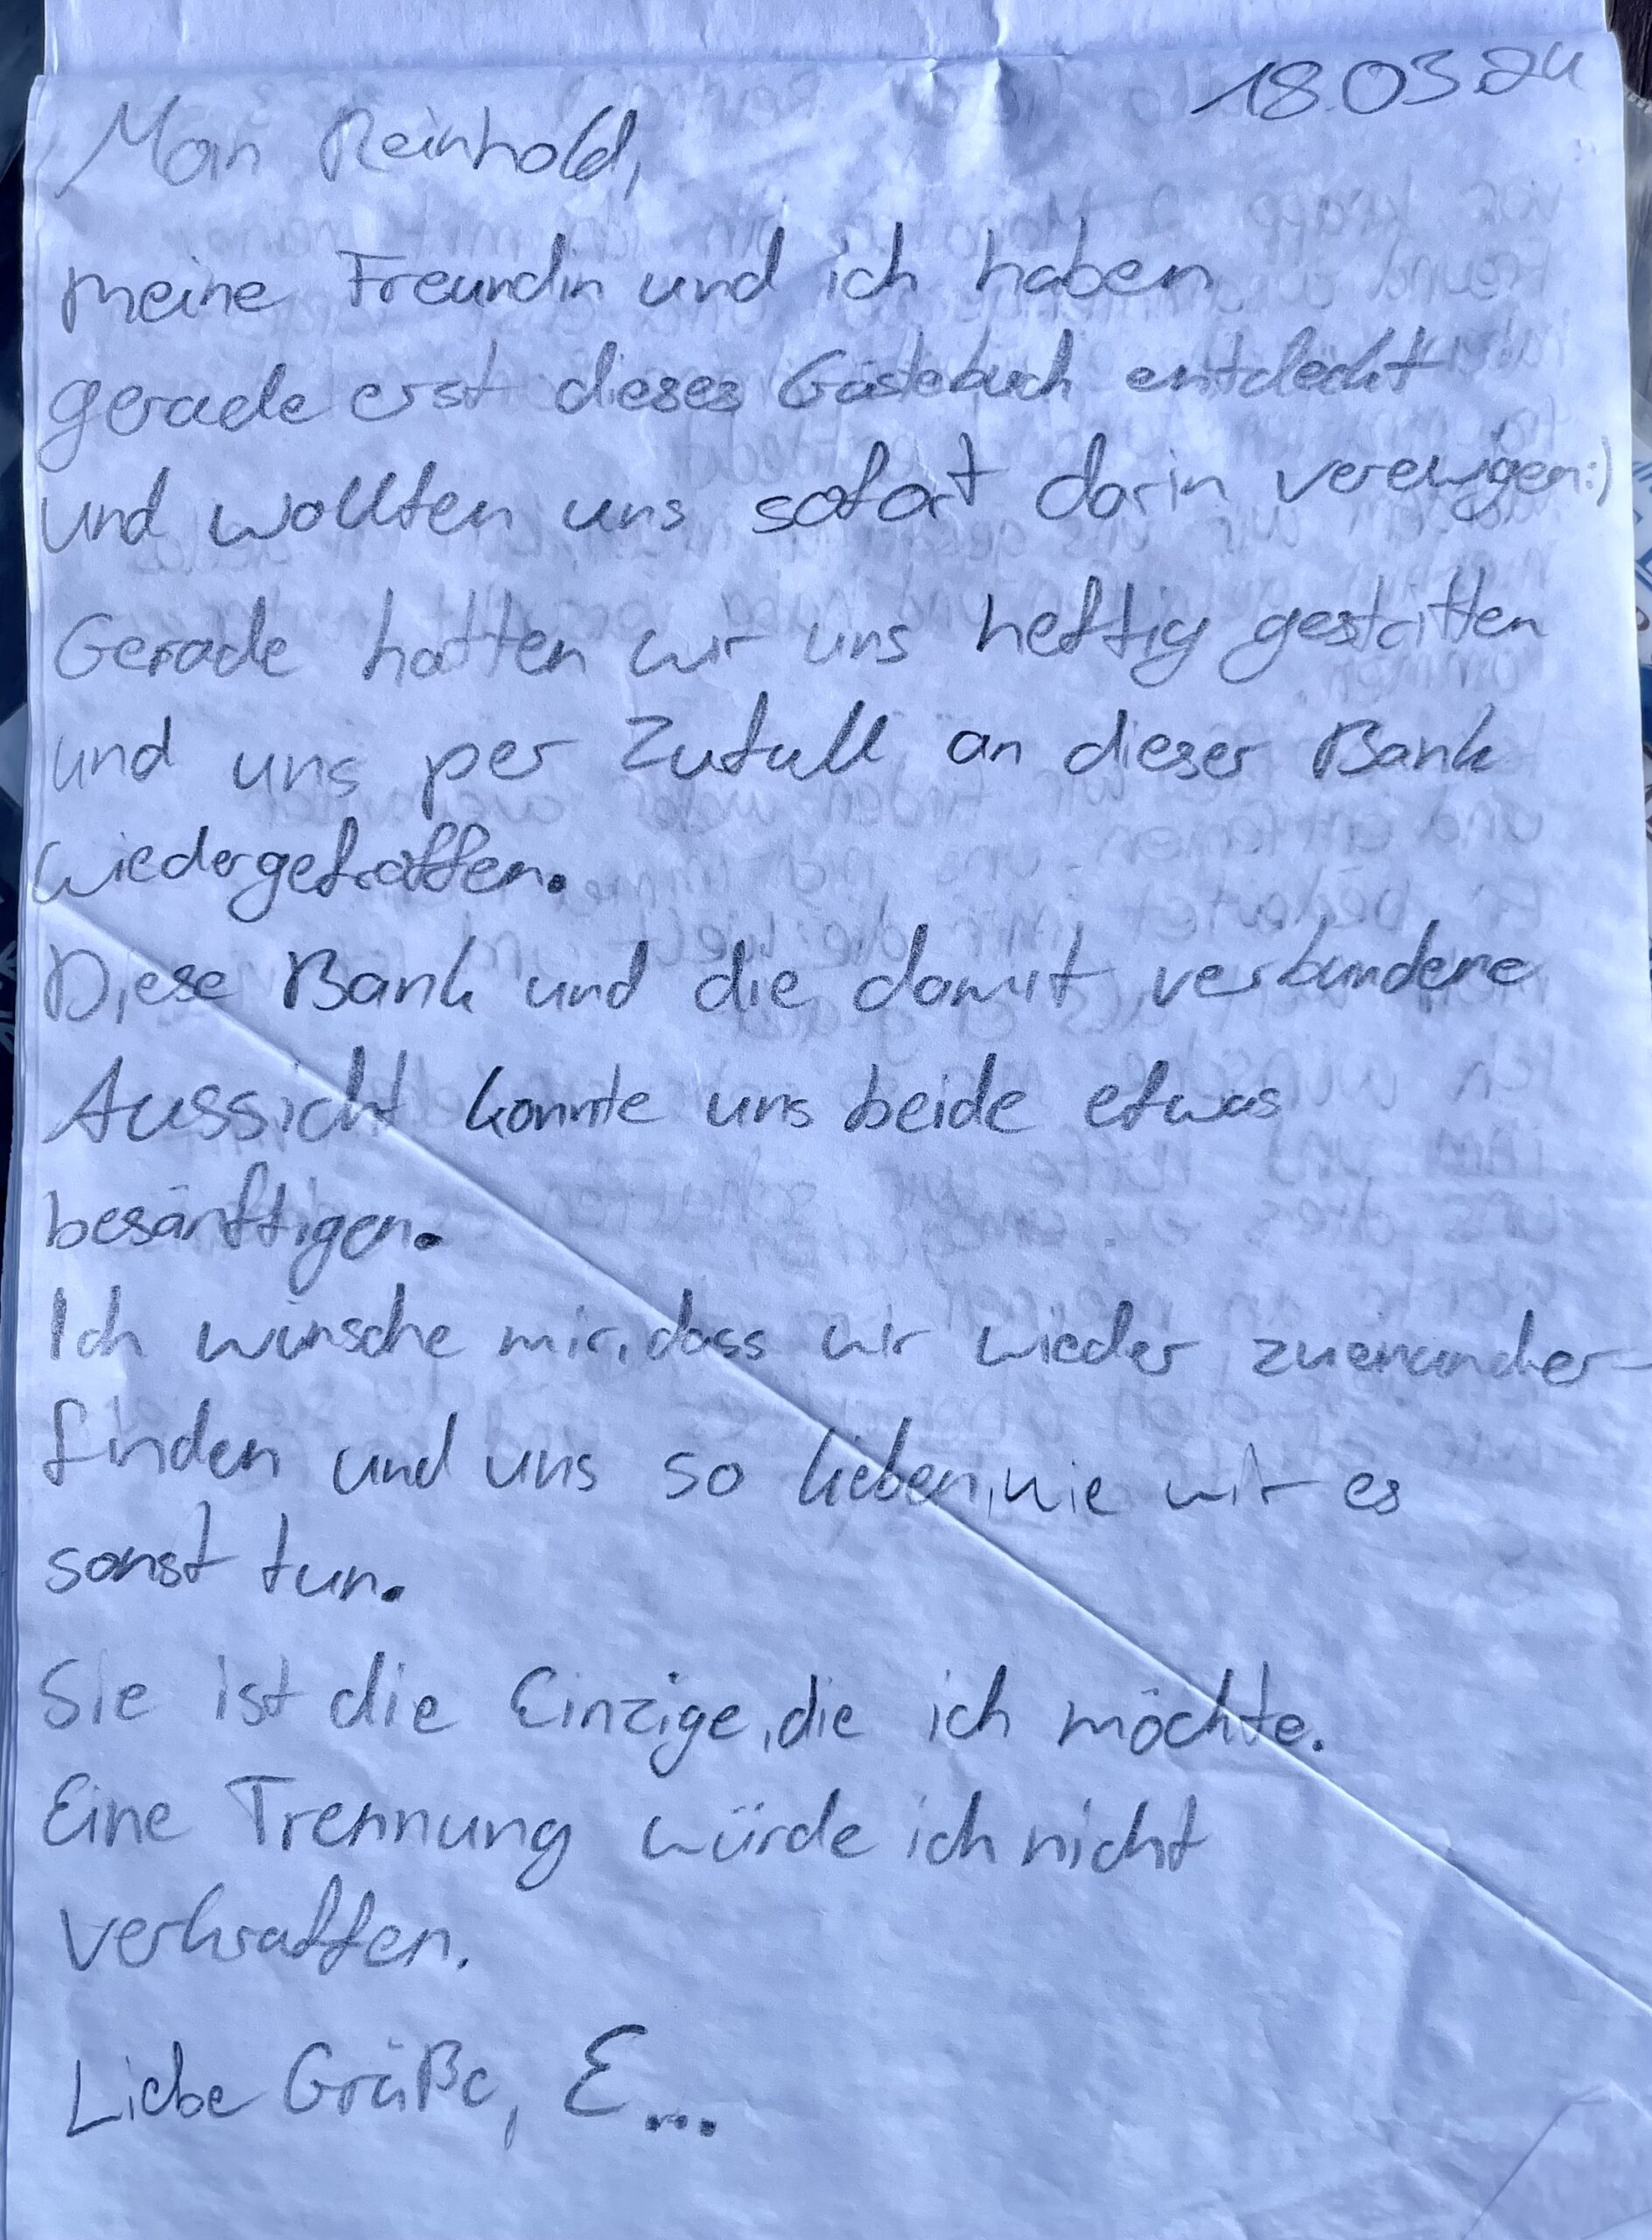 18.03.24
Moin Reinhold,
meine Freundin und ich haben
gerade erst dieses Gästebuch entdeckt
und wollten uns sofort darin verewigen:)
Gerade hatten wir uns heftig gestritten
und uns per Zufall an dieser Bank
wiedergetroffen.
Diese Bank und die damit verbundene
Aussicht konnte uns beide etwas
besänftigen.
Ich wünsche mir, dass wir wieder zueinander-
finden und uns so lieben, wie wir es
sonst tun.
Sie ist die Einzige, die ich möchte.
Eine Trennung würde ich nicht
verkraften.
Liebe Grüße, E...